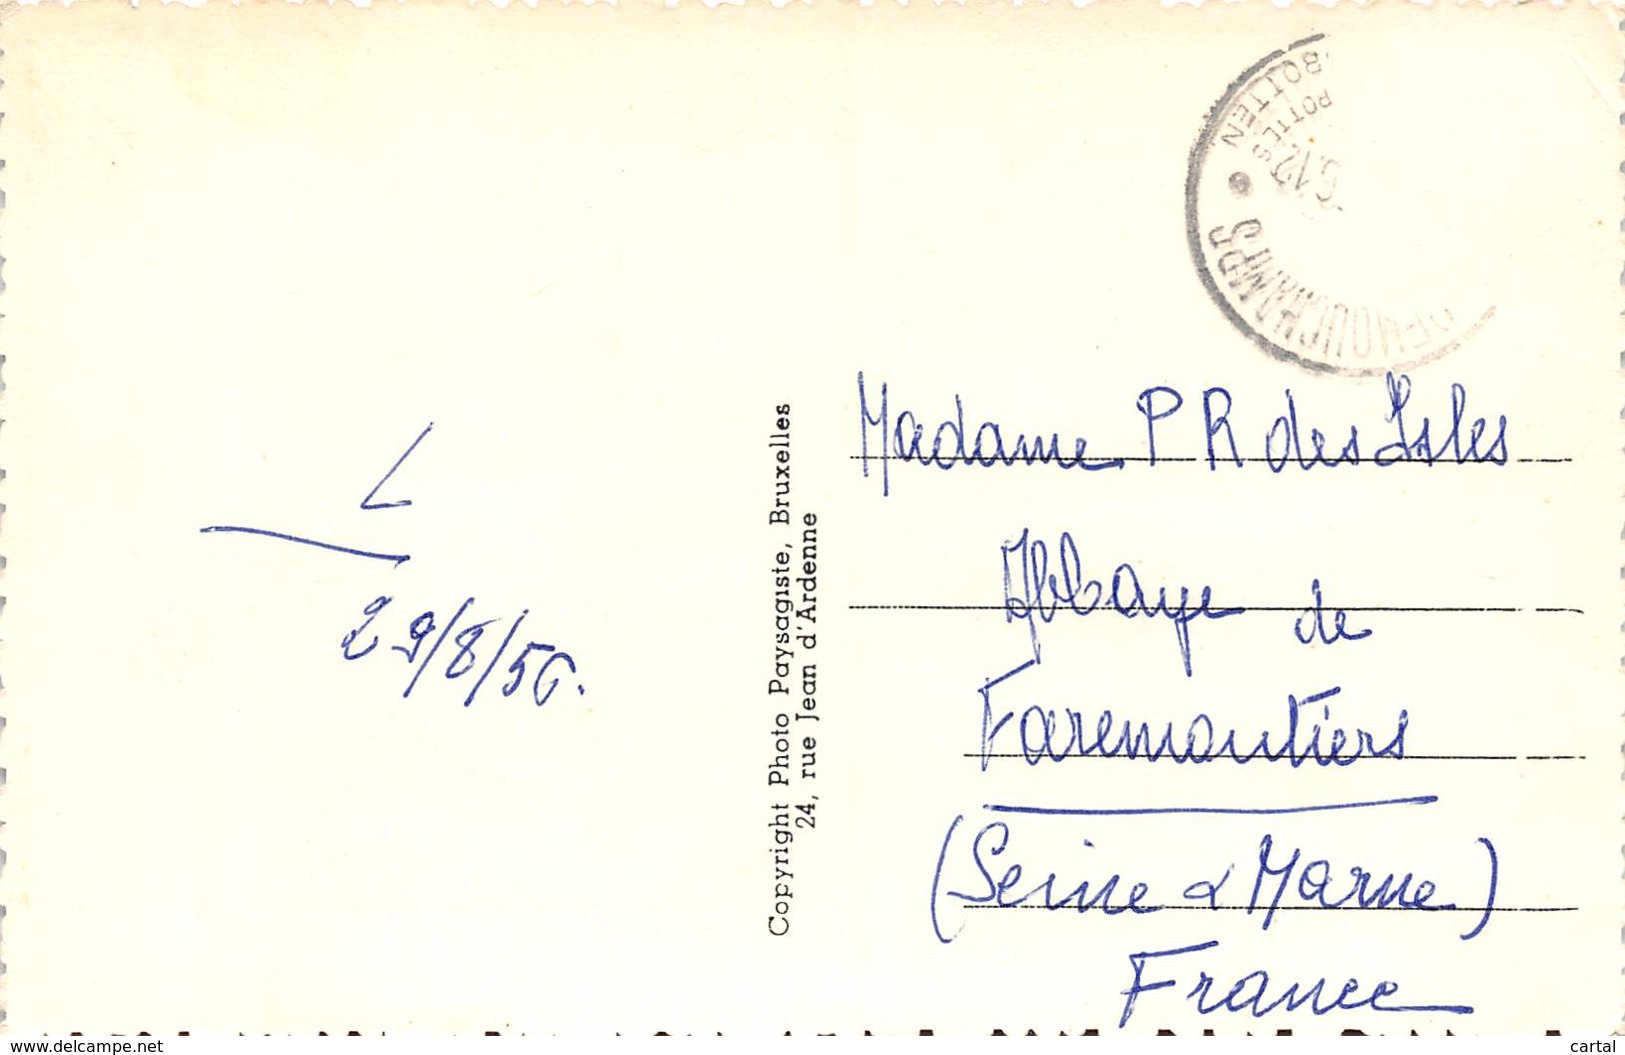 L
29/8/56.
Copyright Photo Paysagiste, Bruxelles
24, rue Jean d'Ardenne
BOTTEN
POTTES
Madame P R des Isles
Abbaye de
Faremoutiers
(Seine & Marne)
France
www.delcampe.net
cartal